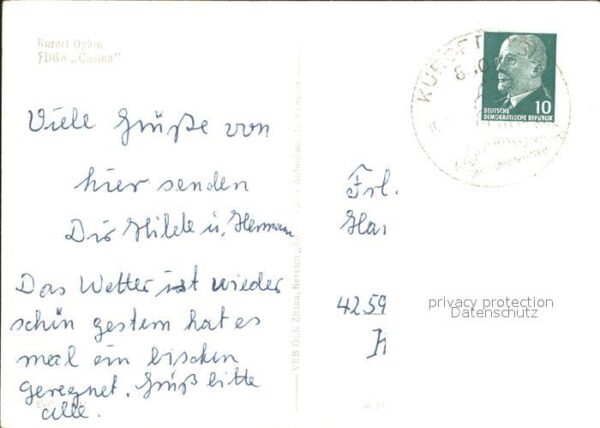 Kurort Oybin
FDGB „Casino"
Viele Grüße von
hier senden
Dir Hilde u. Hermann
Das Wetter ist wieder
schön gestern hat es
mal ein bischen
geregnet. Grüß bitte
alle.
KURORT
8801
10
DEUTSCHE
DEMOKRATISCHE REPUBLIK
Frl.
Har
4259
privacy protection
Datenschutz